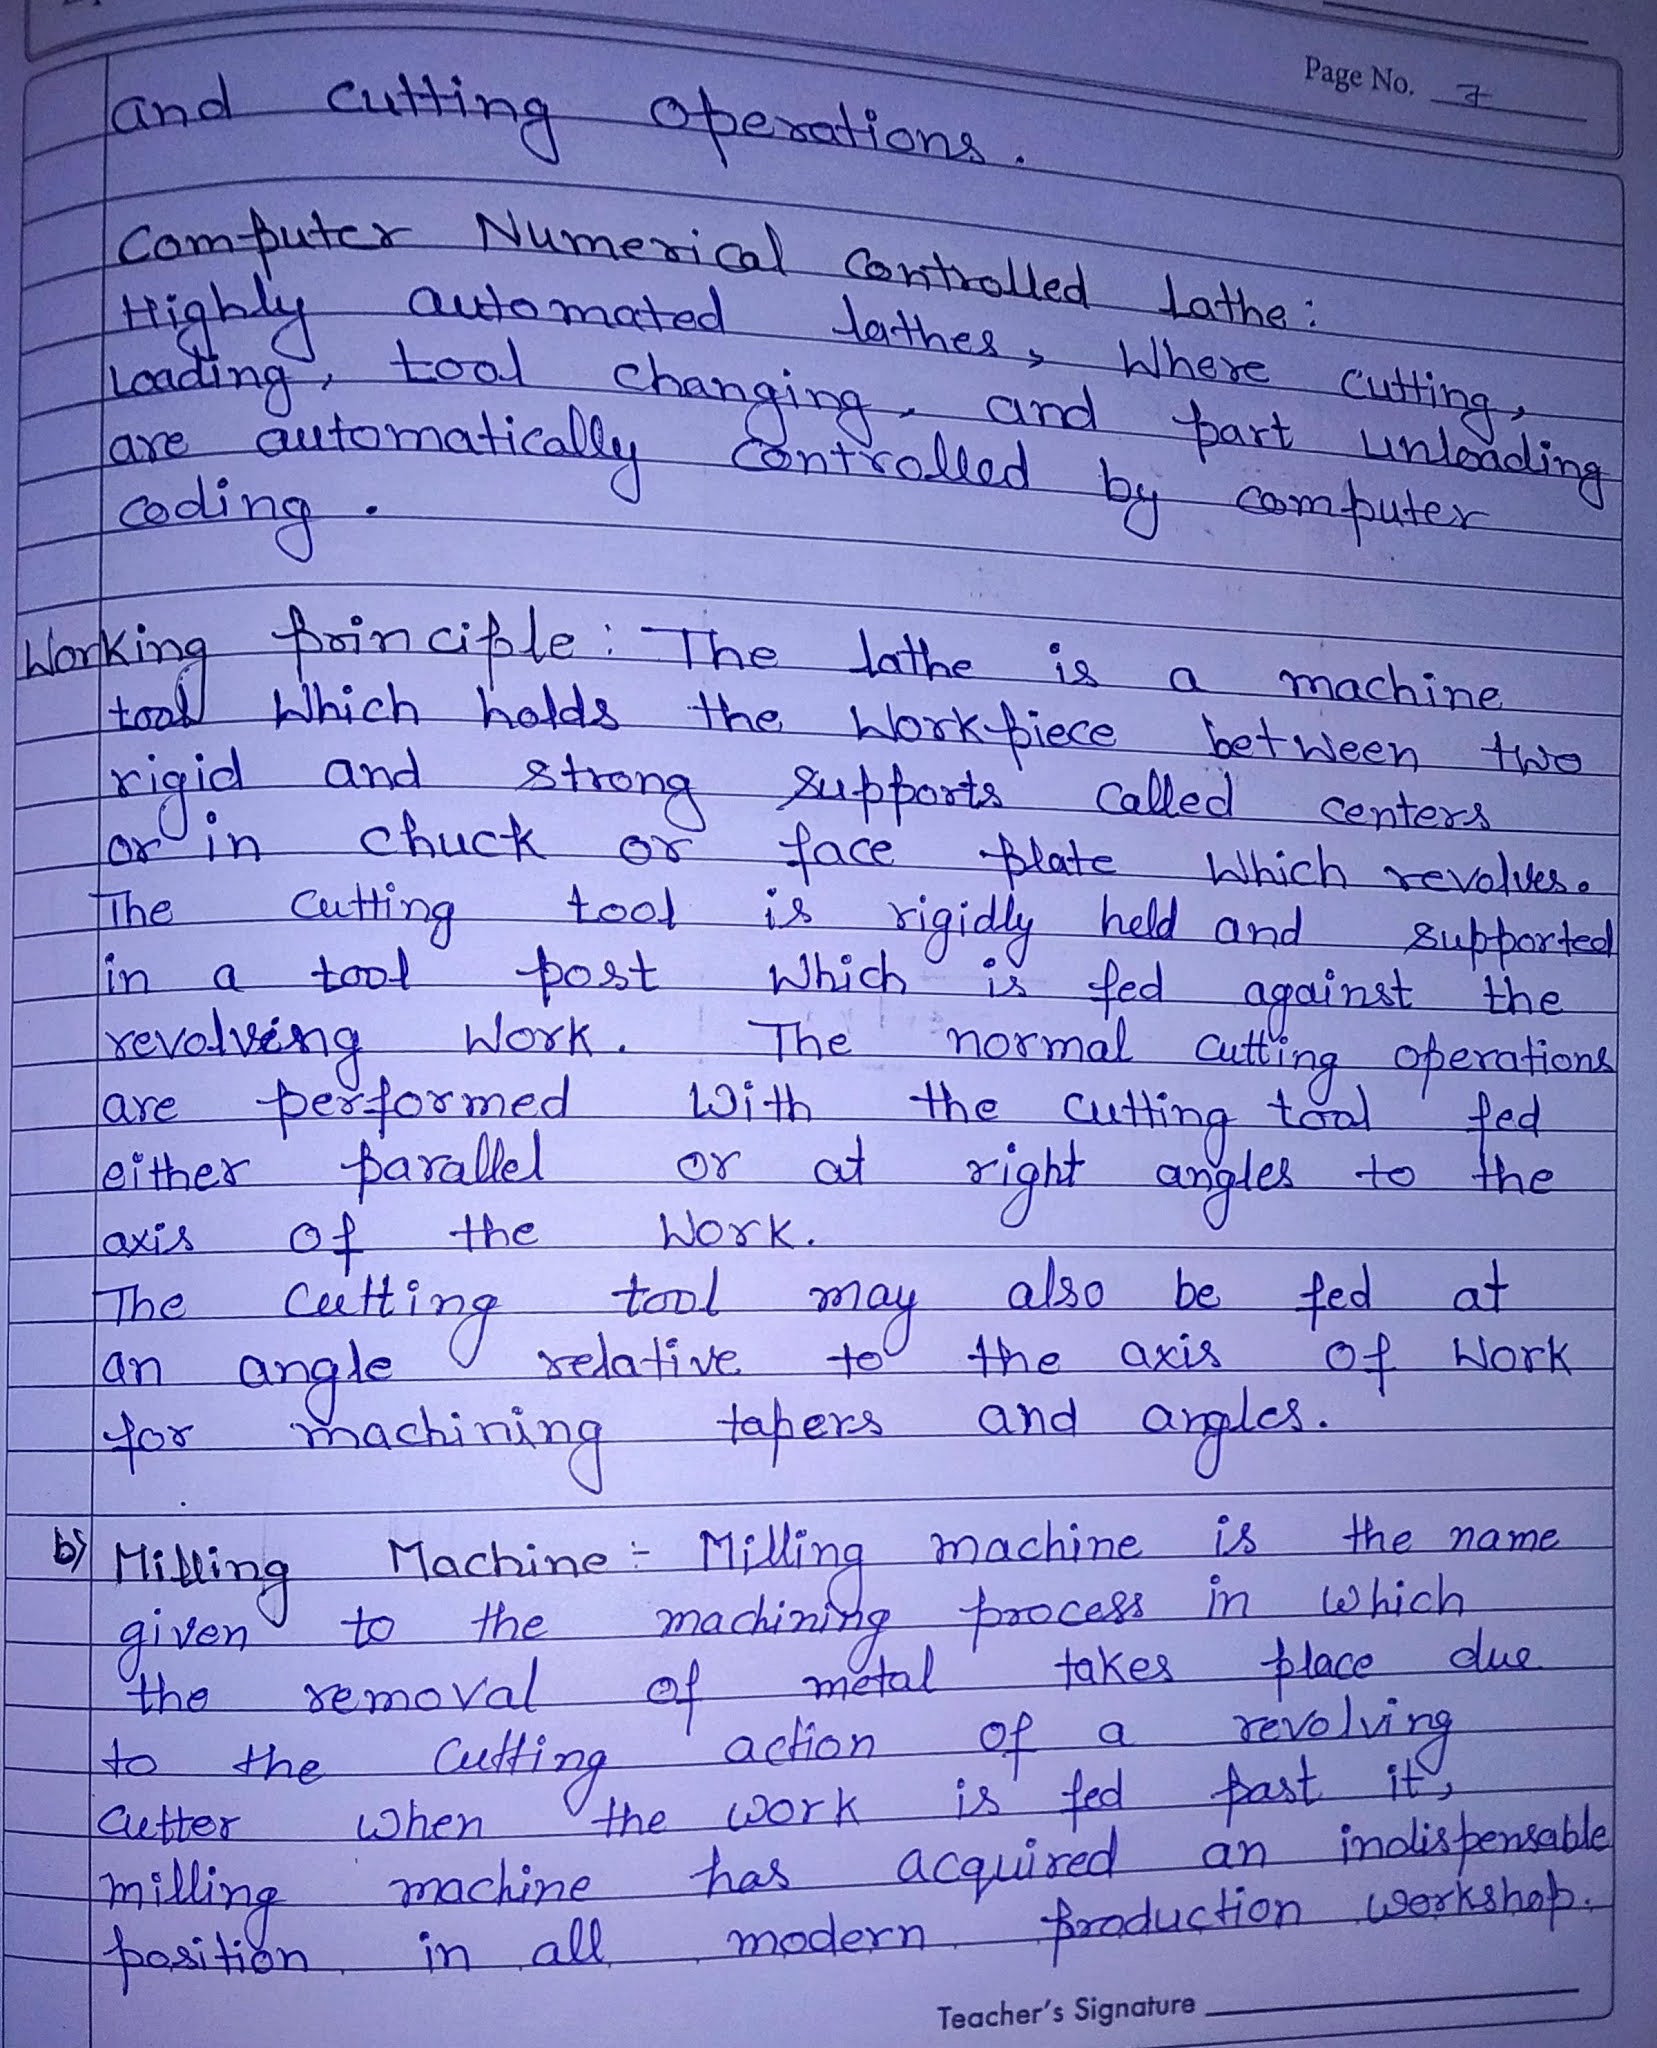 Page No. 7
and cutting operations.
Computer Numerical Controlled Lathe:
Highly automated lathes, Where cutting,
Loading, tool changing, and part unloading
are automatically controlled by computer
coding.
Working principle: The lathe is a machine
tool Which holds the Workpiece between two
rigid and strong supports called centers
or in chuck or face plate Which revolves.
The cutting tool is rigidly held and supported
in a tool post Which is fed against the
revolving Work. The normal cutting operations
are performed With the cutting tool fed
either parallel or at right angles to the
axis of the Work.
The cutting tool may also be fed at
an angle relative to the axis of Work
for machining tapers and angles.
b) Milling Machine:- Milling machine is the name
given to the machining process in which
the removal of metal takes place due
to the cutting action of a revolving
cutter when the work is fed past it,
milling machine has acquired an indispensable
position in all modern production workshop.
Teacher's Signature